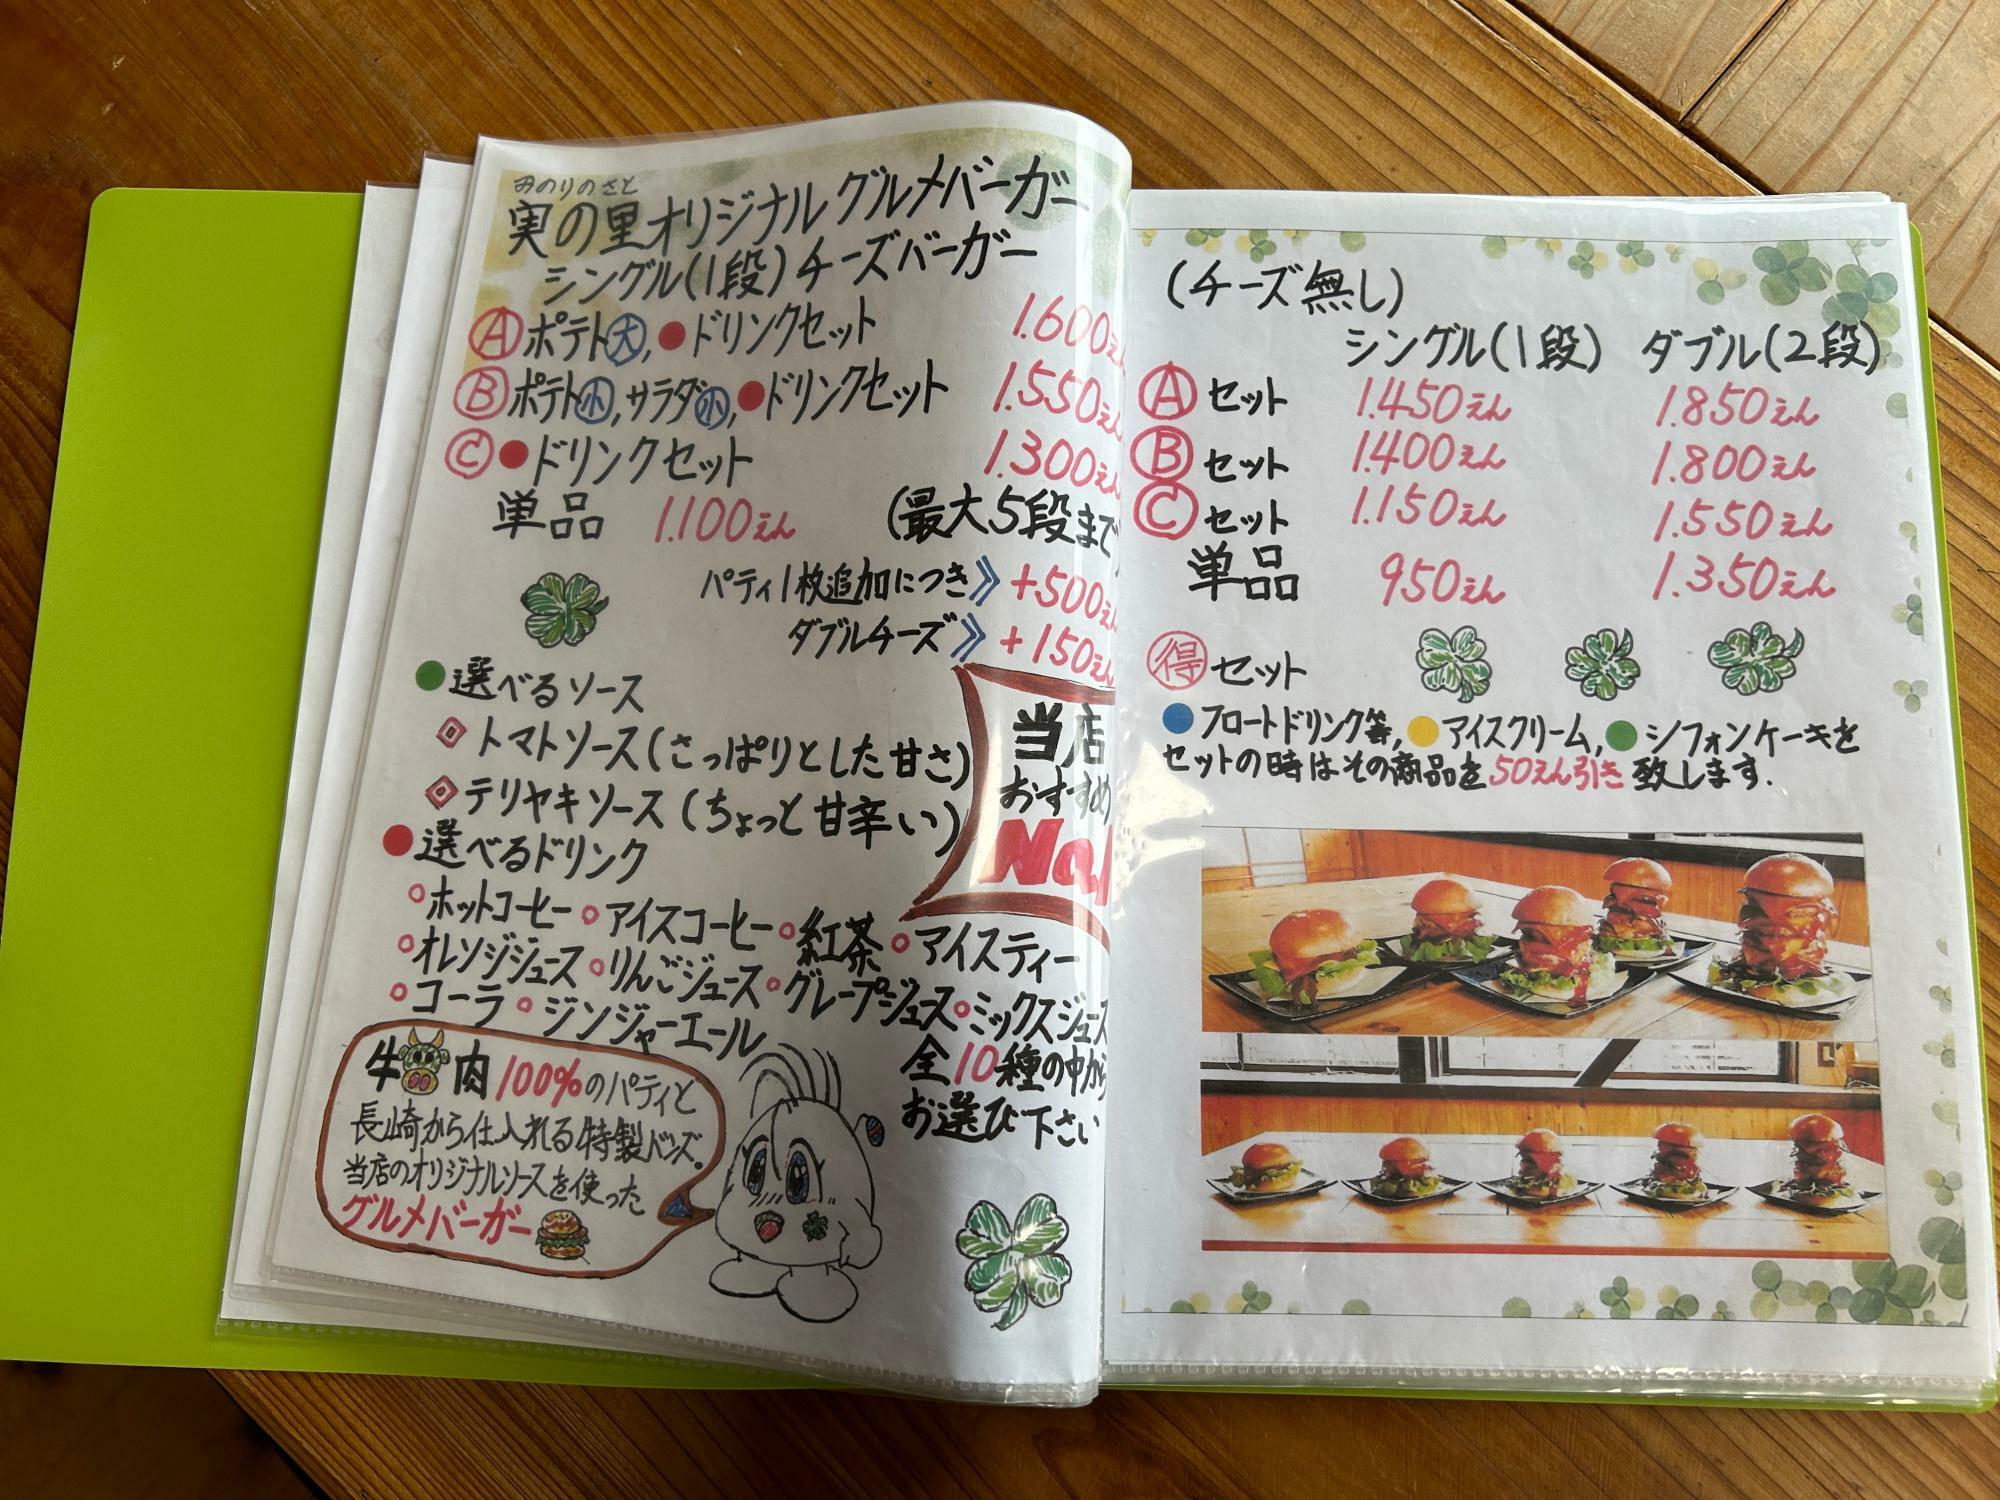 みのりのさと
実の里オリジナルグルメバーガー
シングル(1段)チーズバーガー
Ⓐポテト大,●ドリンクセット 1.600えん
Ⓑポテト小,サラダ小,●ドリンクセット 1.550えん
Ⓒ●ドリンクセット 1.300えん
単品 1.100えん (最大5段まで)
パティ1枚追加につき》+500えん
ダブルチーズ》+150えん
●選べるソース
トマトソース(さっぱりとした甘さ)
テリヤキソース(ちょっと甘辛い)
当店
おすすめ
No.1
●選べるドリンク
○ホットコーヒー○アイスコーヒー○紅茶○アイスティー
○オレンジジュース○りんごジュース○グレープジュース○ミックスジュース
○コーラ○ジンジャーエール
全10種の中から
お選び下さい
牛肉100%のパティと
長崎から仕入れる特製バンズ。
当店のオリジナルソースを使った
グルメバーガー
(チーズ無し)
シングル(1段) ダブル(2段)
Ⓐセット 1.450えん 1.850えん
Ⓑセット 1.400えん 1.800えん
Ⓒセット 1.150えん 1.550えん
単品 950えん 1.350えん
得セット
●フロートドリンク等,●アイスクリーム,●シフォンケーキを
セットの時はその商品を50えん引き致します.